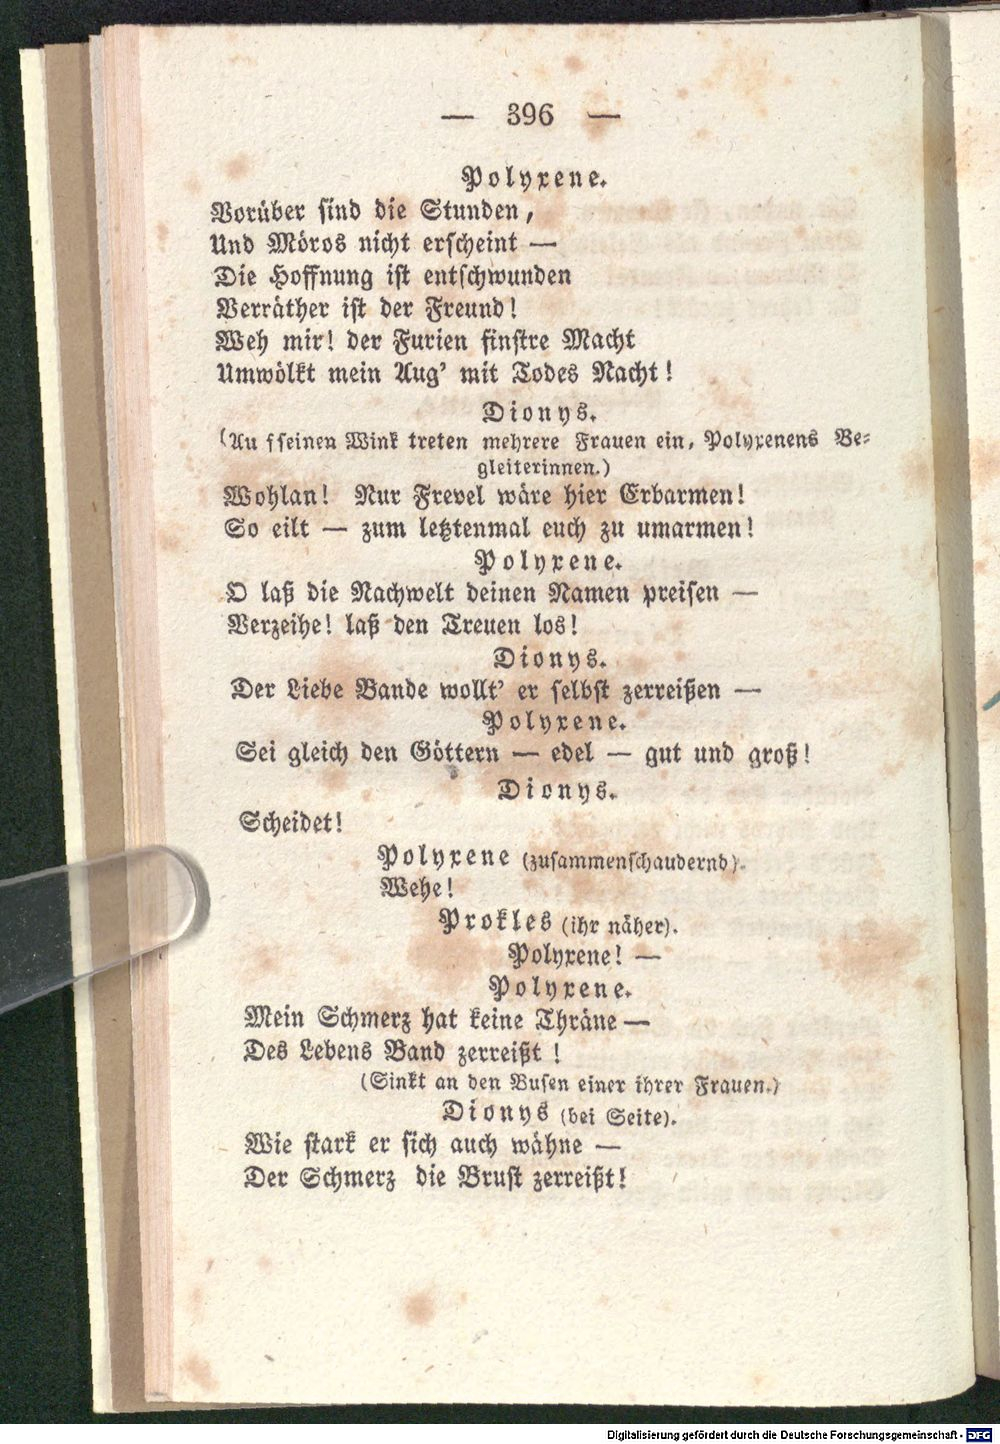 — 396 —
Polyxene.
Vorüber sind die Stunden,
Und Möros nicht erscheint —
Die Hoffnung ist entschwunden
Verräther ist der Freund!
Weh mir! der Furien finstre Macht
Umwölkt mein Aug' mit Todes Nacht!
Dionys.
(Au fseinen Wink treten mehrere Frauen ein, Polyxenens Be-
gleiterinnen.)
Wohlan! Nur Frevel wäre hier Erbarmen!
So eilt — zum letztenmal euch zu umarmen!
Polyxene.
O laß die Nachwelt deinen Namen preisen —
Verzeihe! laß den Treuen los!
Dionys.
Der Liebe Bande wollt' er selbst zerreißen —
Polyxene.
Sei gleich den Göttern — edel — gut und groß!
Dionys.
Scheidet!
Polyxene (zusammenschaudernd).
Wehe!
Prokles (ihr näher).
Polyxene! —
Polyxene.
Mein Schmerz hat keine Thräne —
Des Lebens Band zerreißt !
(Sinkt an den Busen einer ihrer Frauen.)
Dionys (bei Seite).
Wie stark er sich auch wähne —
Der Schmerz die Brust zerreißt!
Digitalisierung gefördert durch die Deutsche Forschungsgemeinschaft - DFG